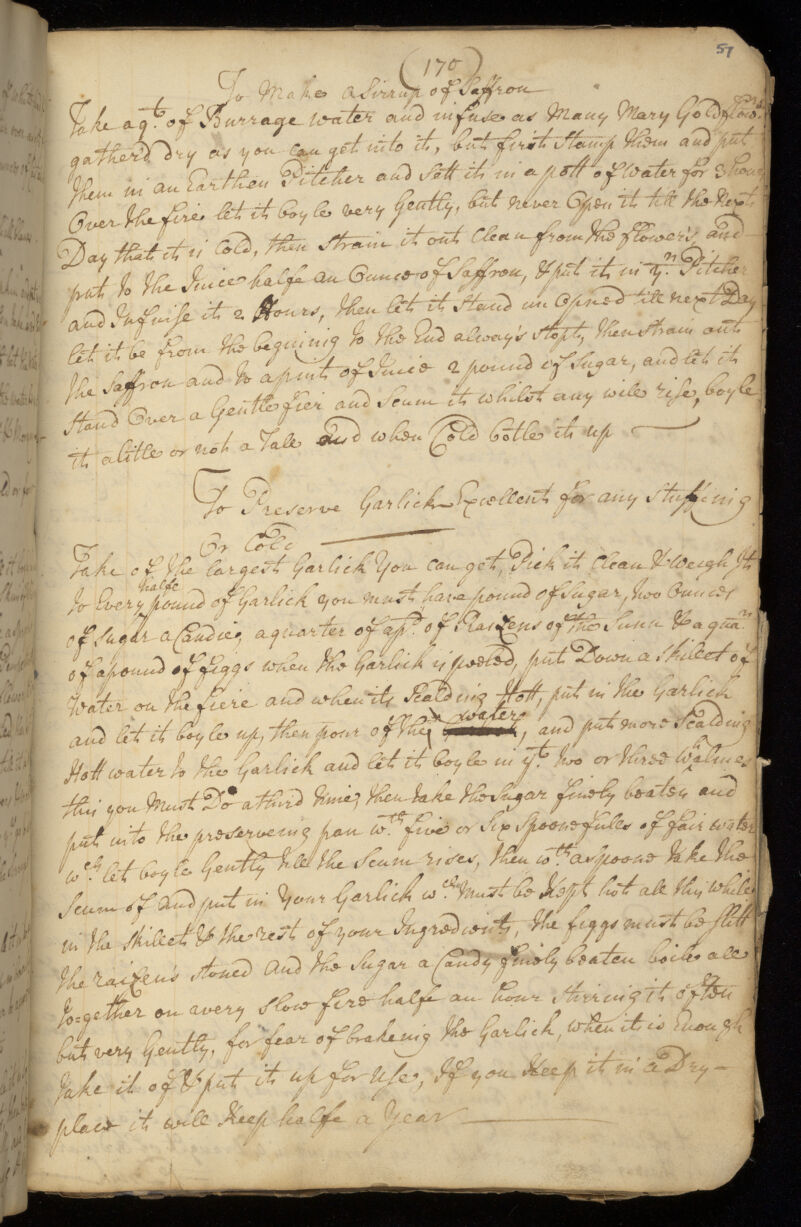 57
(170)
To Make a Sirrup of Saffron
Take a qt. of Burrage water and infuse as Many Mary Gold flowrs
gatherd dry as you can get into it, but first Stamp them and put
them in an Earthen Pitcher and Sett it in a pott of Water for 3 hours
Over the fire let it boyle very Gently, but never Open it till the Next
Day that it is Cold, then Strain it out Clean from the flower's and
put to the Juice halfe an Ounce of Saffron, & put it in ye. Pitcher
and Infuise it 2 Hours, then let it Stand un Opned till next Day
let it be from the begining to the End alway's Stopt, then Strain out
the Saffron and to a pint of Juice 2 pound of Sugar, and let it
Stand Over a Gentle fier and Scum it whilst any will rise, boyle
it a litle or not a Tale And when Cold botle it up
To Preserve Garlick Excellent for any Stuffinig
Or Cold
Take of the largest Garlick You can get, Pick it Clean & Weigh It
to Every halfe pound of Garlick you must have pound of Sugar, two Ounces
of Sugar a Candie, a quarter of a pd. of Raizens of the Sunn & a quar.
of a pound of figgs when the Garlick is peeled, put Down a Skillet of
Water on the fiere and when its Scalding Hott, put in the Garlick
and let it boyle up, then pour of the water, and put more Scalding
Hott water to the Garlick and let it boyle in yt. two or three Walmes
this you Must Do a third time, then take the Sugar finely beaten and
put into the preserveing pan wth. five or Six Spoonefulls of fair water
wch. let boyle Gently till the Scum rises, then wth. a spoone take the
Scum of and put in Your Garlick wch. Must be Kept hot all this while
in the Skillet & the rest of your Ingredients, the figgs must be Slitt
the raizen's Stoned And the Sugar a Candy finely beaten boile all
to=gether on a very Slow fire halfe an hour Stirring it often
but very Gently, for fear of brakeing the Garlick, when it is Enough
take it of & put it up for Use, If you Keep it in a Dry
place it will Keep halfe a Year